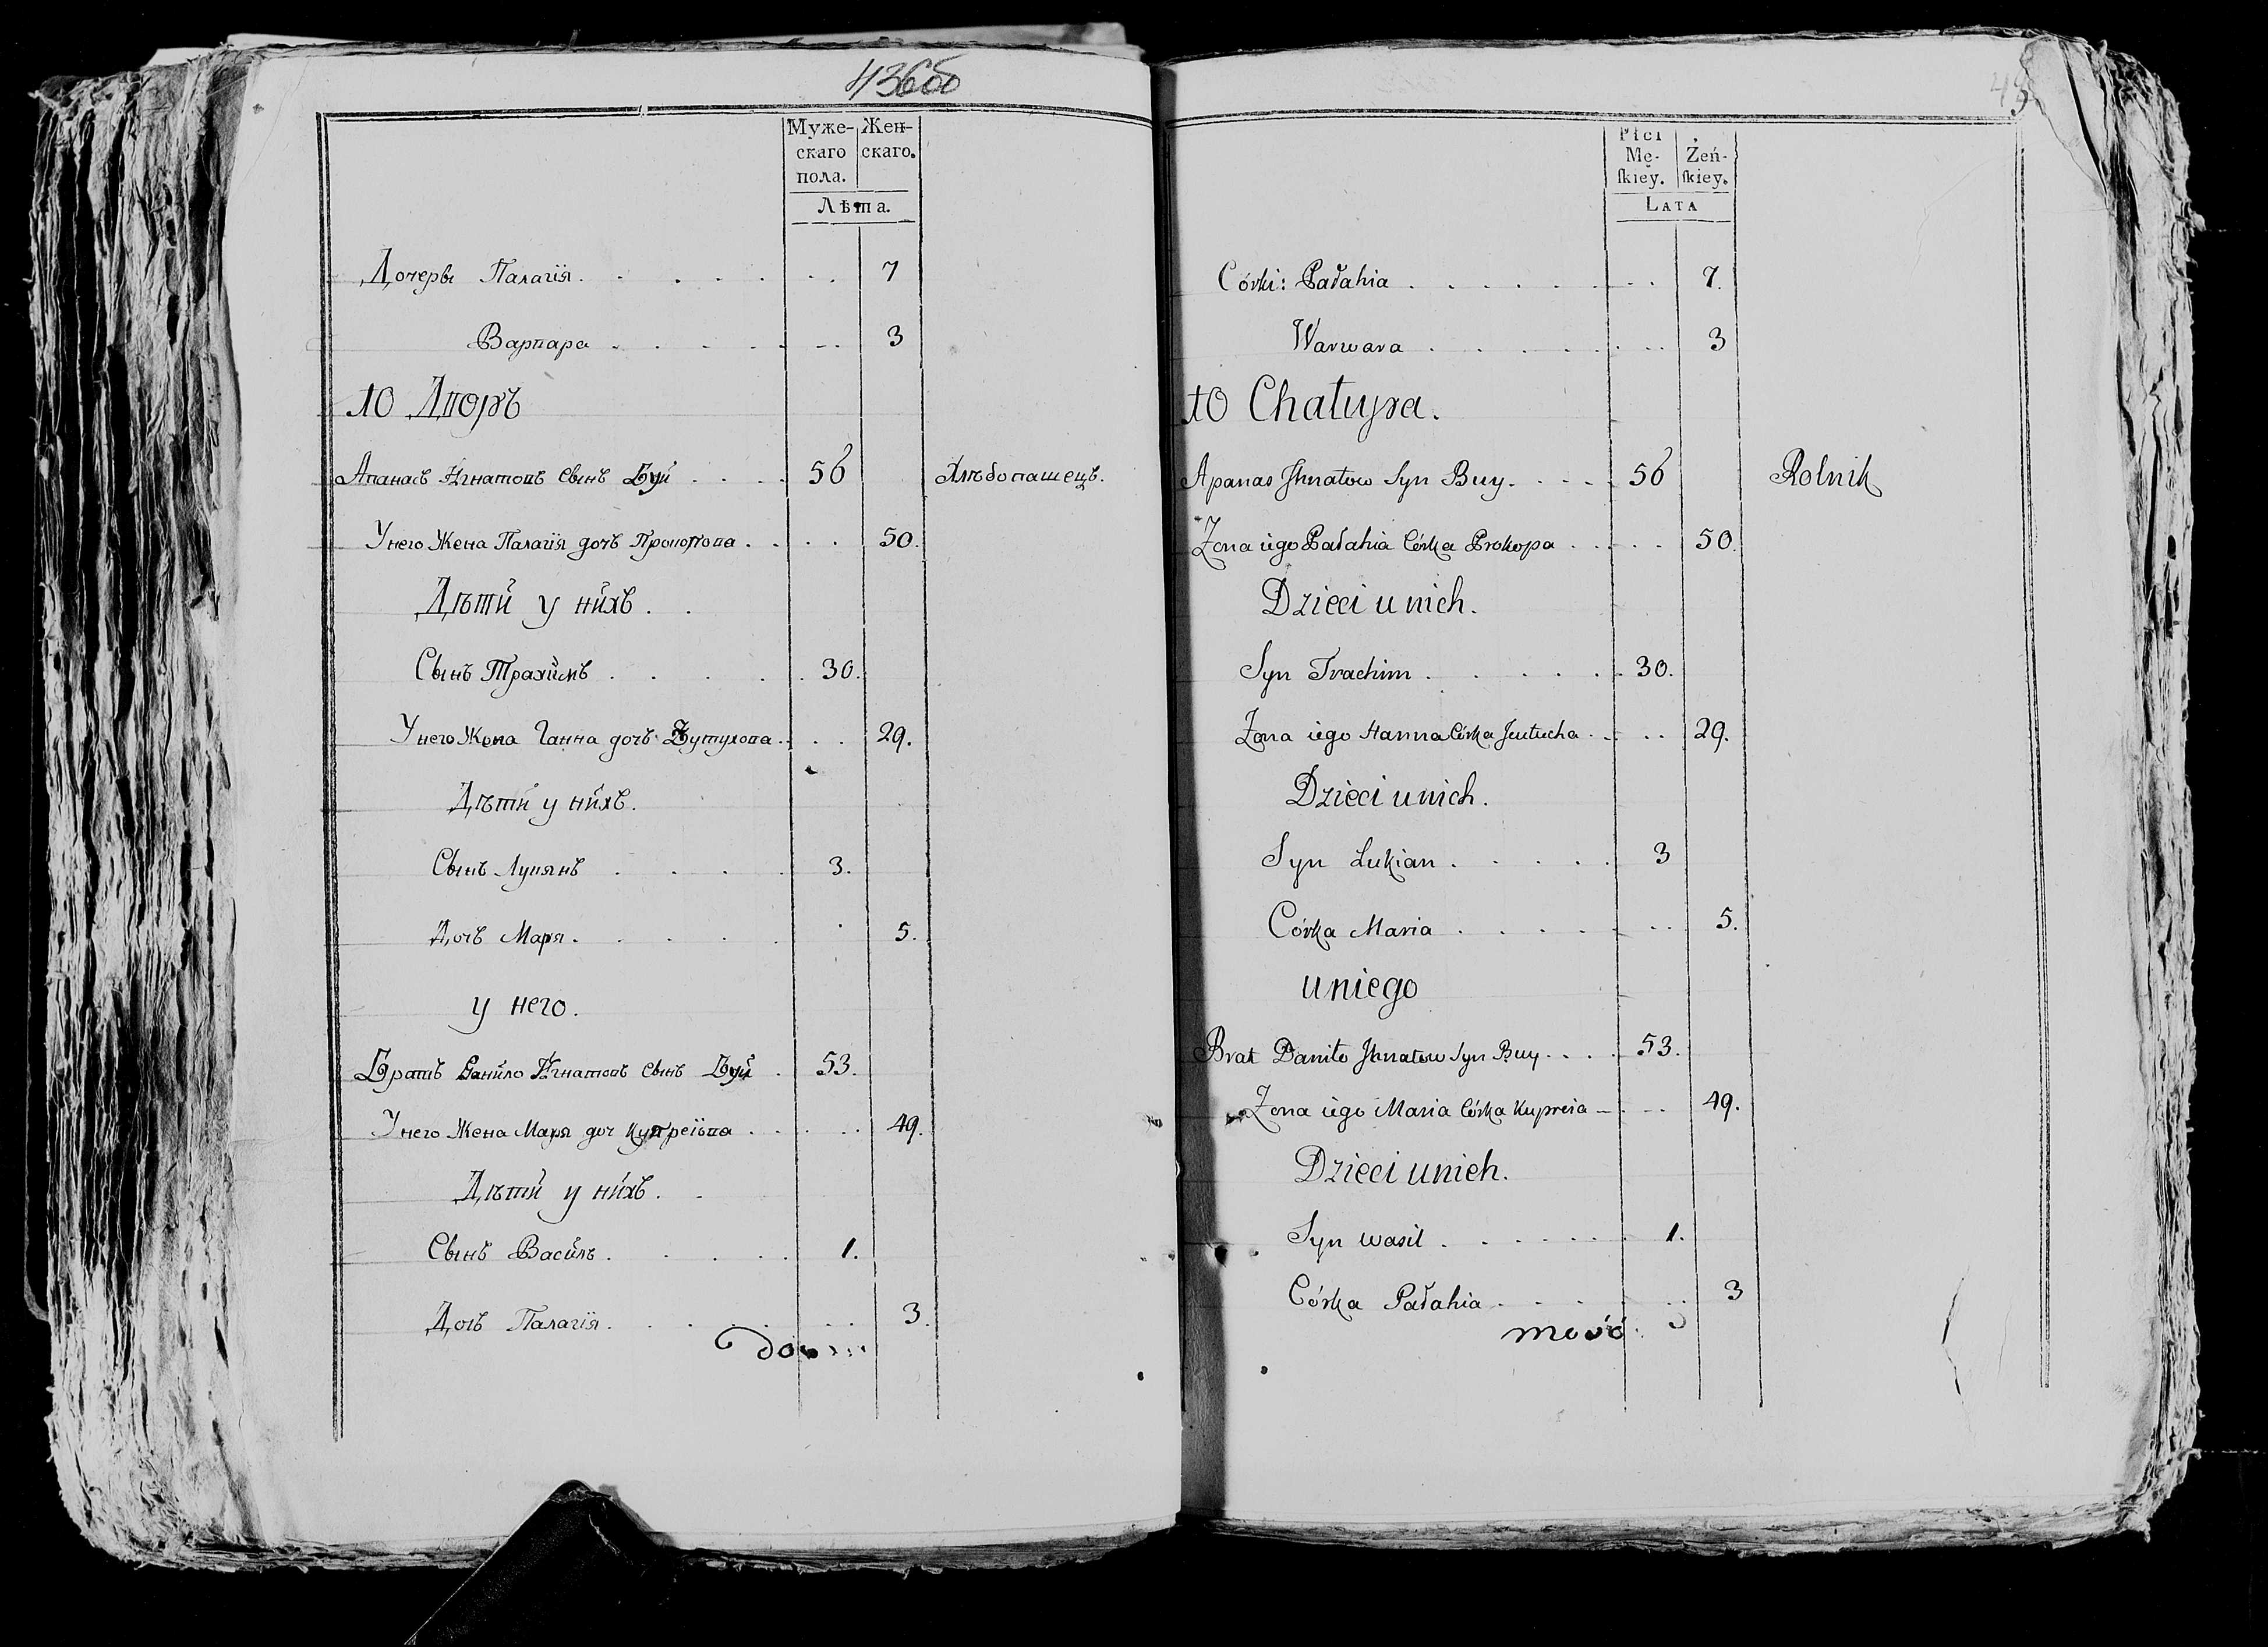 436об
Муже- Жен-
скаго скаго.
пола.
Лѣта.
Дочеры Палагія . . . . . . . 7
Варвара . . . . . . . 3
10 Дворъ
Апанасъ Игнатовъ Сынъ Буй . . . . 56 Хлѣбопашецъ.
У него Жена Палагія дочъ Прокопова . . . . 50.
Дѣти у нихъ . .
Сынъ Трахимъ . . . . . 30.
У него Жена Ганна дочъ Еутухова . . . 29.
Дѣти у нихъ.
Сынъ Лукянъ . . . . 3.
Дочъ Маря . . . . . . 5.
у него.
Братъ Данило Игнатовъ Сынъ Буй . 53.
У него Жена Маря доч Купреіова . . . . 49.
Дѣти у нихъ . .
Сынъ Василь . . . . 1.
Дочъ Палагія . . . . . . 3.
Płci
Mę- Żeń-
skiey. skiey.
LATA
Córki: Pałahia . . . . . . . . 7.
Warwara . . . . . . . 3
10 Chatupa.
Apanas Ihnatow Syn Buy . . . . 56 Rolnik
Zona iego Pałahia Córka Prokopa . . . . 50.
Dzieci u nich.
Syn Trachim . . . . . . 30.
Zona iego Hanna Córka Jeutucha . . . . 29.
Dzieci u nich.
Syn Lukian . . . . . 3
Córka Maria . . . . . . . 5.
u niego
Brat Daniło Ihnatow Syn Buy . . . . 53.
Zona iego Maria Córka Kupreia . . . 49.
Dzieci u nich.
Syn wasil . . . . . . . 1.
Córka Pałahia . . . . . . 3